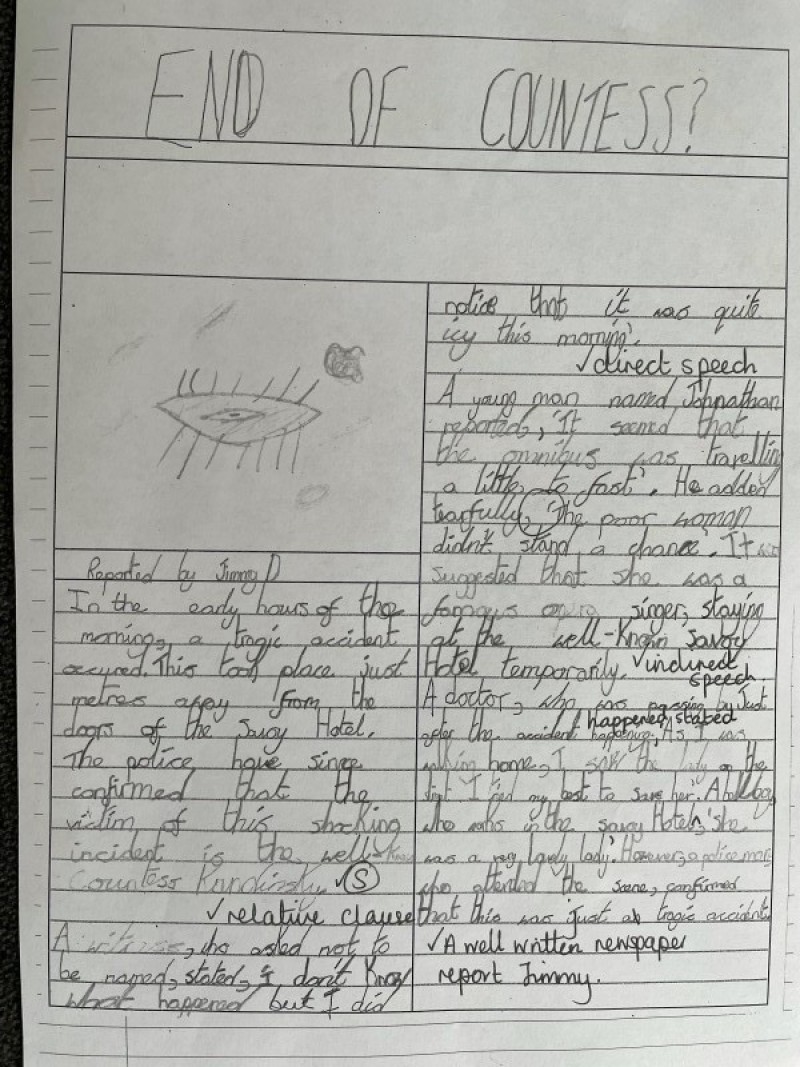 END OF COUNTESS?
Reported by Jimmy D
In the early hours of the
morning, a tragic accident
occured. This took place just
metres away from the
doors of the Savoy Hotel.
The police have since
confirmed that the
victim of this shocking
incident is the well-know
Countess S
✓relative clause
A witness, who asked not to
be named, stated, 'I don't know
what happened but I did
notice that it was quite
icy this morning'.
✓direct speech
A young man named Johnathan
reported, 'It seemed that
the omnibus was travelling
a little to fast'. He added
tearfully, 'The poor woman
didn't stand a chance'. It was
suggested that she was a
famous opera singer, staying
at the well-known Savoy
Hotel temporarily. ✓indirect
speech.
A doctor, who was passing by just
happened, stated
after the accident 'As I was
walking home, I saw the lady on the
I tried my best to save her.' A bellboy
who works in the Savoy Hotel, 'she
was a very lovely lady'. However, a police man,
who attended the scene, confirmed
that this was just a tragic accident.
✓A well written newspaper
report Jimmy.